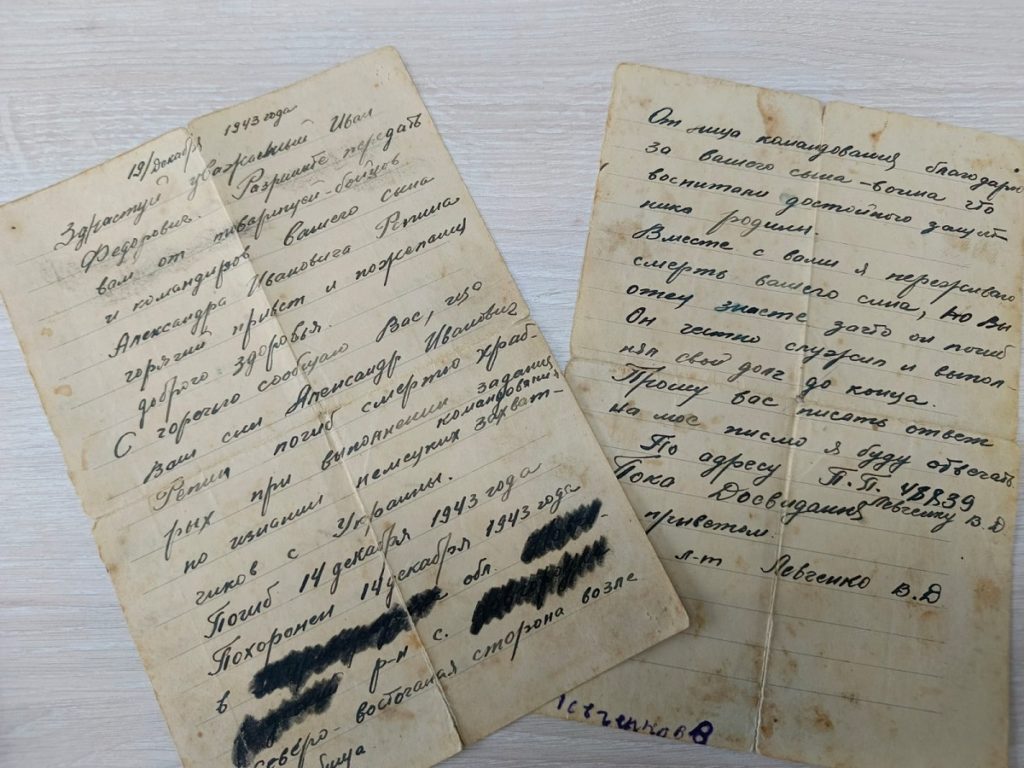 19/декабря 1943 года
Здраствуй уважаемый Иван
Федорович. Разришите передать
вам от товарищей-бойцов
и командиров вашего сина
Александра Ивановича Репина
горячий привет и пожелания
доброго здоровья.
С горечью сообщаю Вас, что
Ваш син Александр Иванович
Репин погиб смертю храб-
рых при выполнении задания
по изгнании немецких захват-
чиков с Украины.
Погиб 14 декабря 1943 года
Похоронен 14 декабря 1943 года
в обл.
р-н с.
северо-восточная сторона возле
От лица командования благодарю
за вашего сына-воина что
воспитали достойного защит
ника родины.
Вместе с вами я переживаю
смерть вашего сина, но Вы
отец знаете зачто он погиб
Он честно служил и выпол-
нял свой долг до конца.
Прошу вас писать ответ
на мое писмо я буду отвечать
По адресу П.П. 48839
Левченку В.Д
Пока Досвидания
приветом.
л-т Левченко В.Д